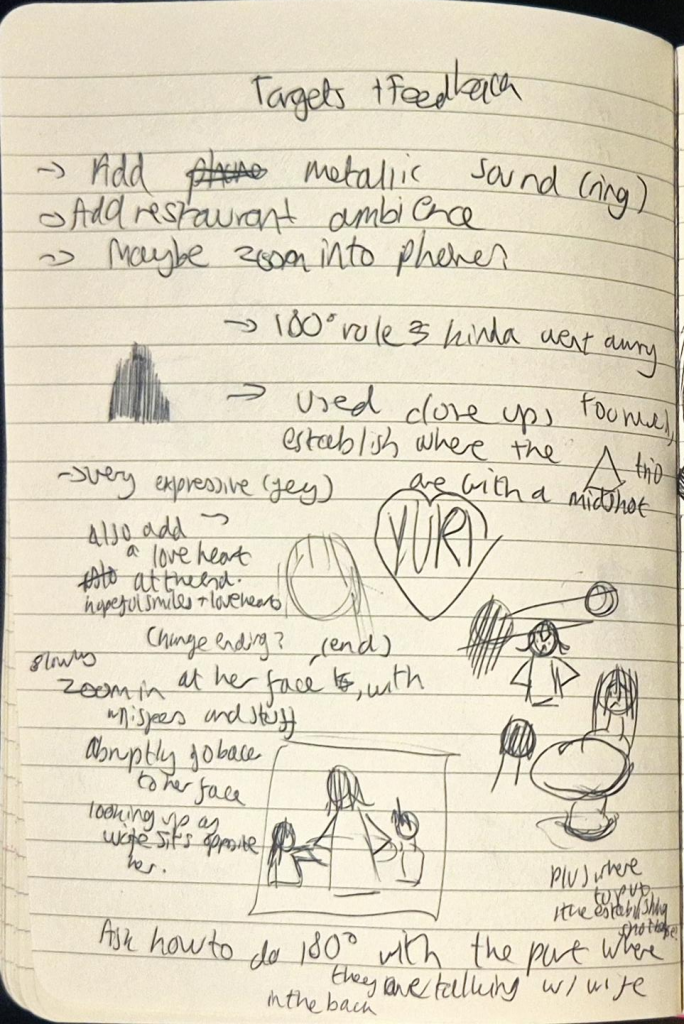 Targets + Feedback
→ Add phone metallic sound (ring)
→ Add restaurant ambience
→ Maybe zoom into phone?
→ 180° rule is kinda went awry
→ used close ups
establish where the trio
are with a midshot
→ very expressive (yey)
Also add →
a love heart
at the end.
hopeful smiles + love hearts
YURI
Change ending? (end)
slowly
zoom in at her face, with
whispers and stuff
abruptly go back
to her face
looking up as
wife sits opposite
her.
plus where
to put
the establishing
shot
Ask how to do 180° with the part where
they are talking w/ wife
in the back